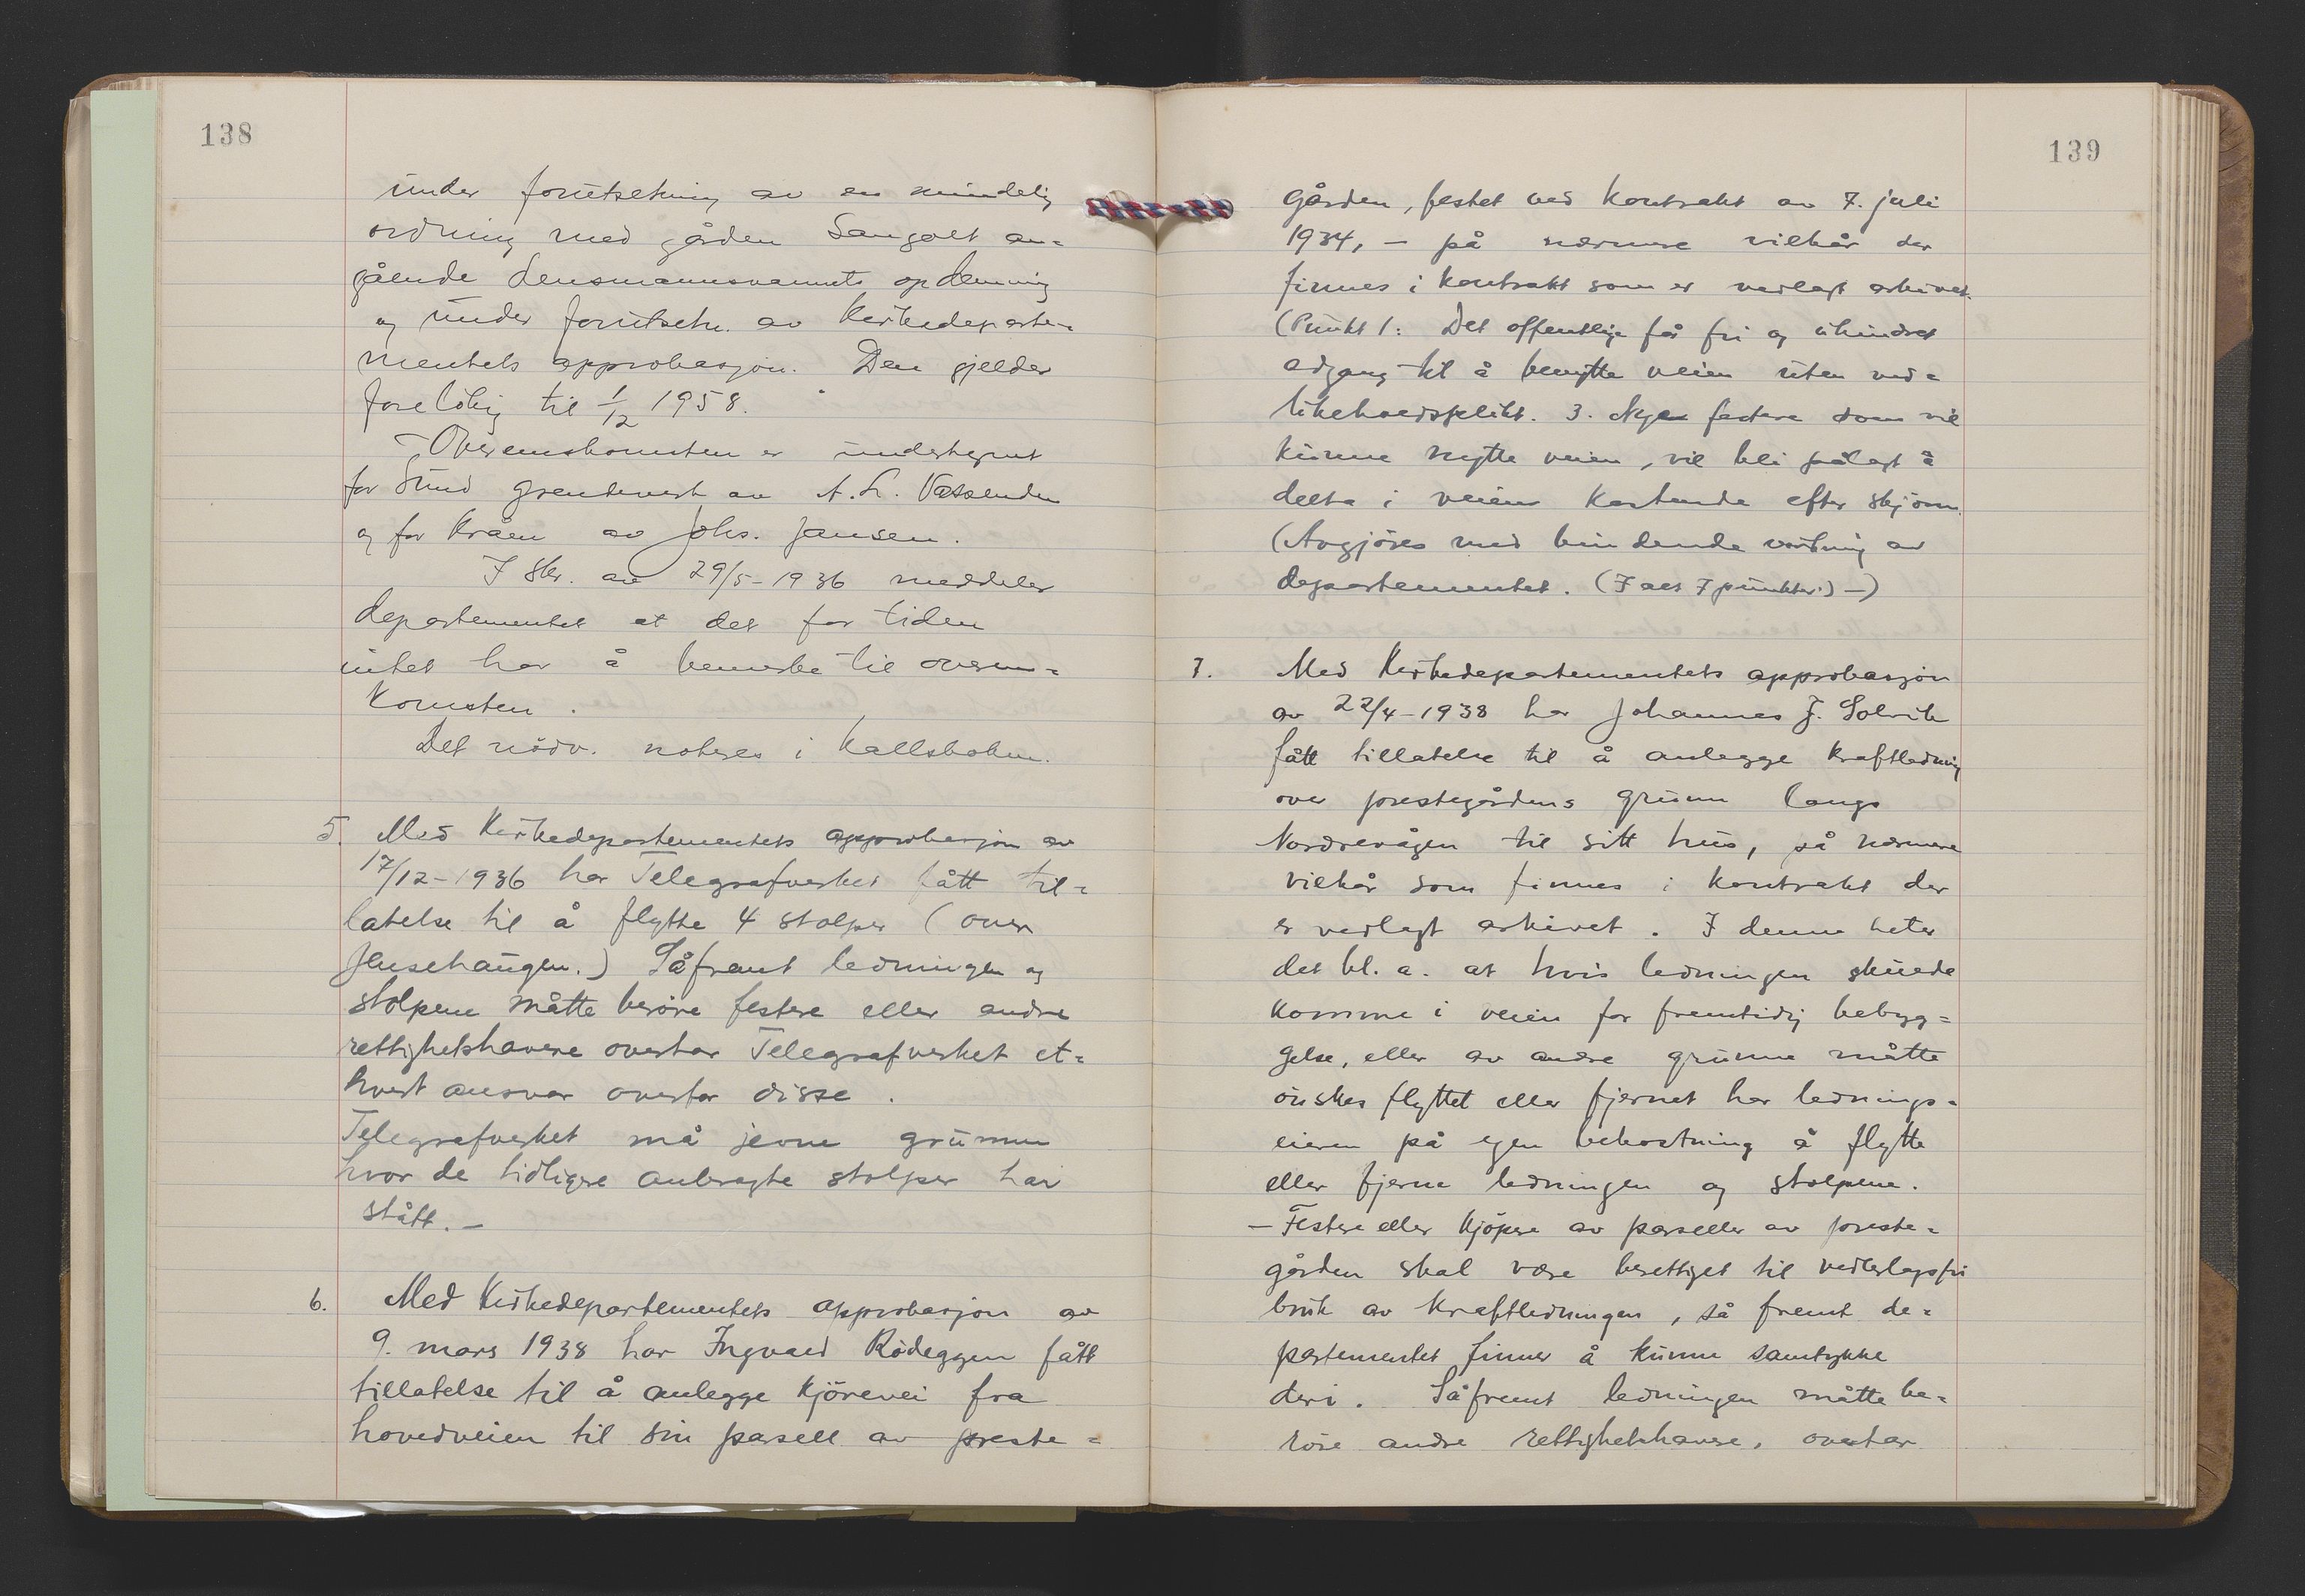 138
under forutsetning av en mindelig
ordning med gården Sangolt an=
gående Lensmannsvannets opdemning
og under forutsetn. av Kirkedeparte=
mentets approbasjon. Den gjelder
foreløbig til 1/12 1958.
– Overenskomsten er undertegnet
for Sund grendeverk av A. L. Vassenden
og for Kråen av Johs. Jansen.
I skr. av 29/5-1936 meddeler
departementet at det for tiden
intet har å bemerke til overens=
komsten.
Det nödv. noteres i kallsboken.
5. Med Kirkedepartementets approbasjon av
17/12-1936 har Telegrafverket fått til=
latelse til å flytte 4 stolper (over
Husehaugen.) Såfremt ledningen og
stolpene måtte beröre festere eller andre
rettighetshavere overtar Telegrafverket et=
hvert ansvar overfor disse.
Telegrafverket må jevne grunnen
hvor de tidligere anbragte stolper har
stått. –
6. Med Kirkedepartementets approbasjon av
9. mars 1938 har Ingvald Rödeggen fått
tillatelse til å anlegge kjörevei fra
hovedveien til sin parsell av preste=
139
gården, festet ved kontrakt av 7. juli
1934, – på nærmere vilkår der
finnes i kontrakt som er vedlagt arkivet.
(Punkt 1: Det offentlige får fri og uhindret
adgang til å benytte veien uten ved=
likeholdsplikt. 3. Nye festere som vil
kunne nytte veien, vil bli pålagt å
delta i veiens kostende efter skjönn.
(Avgjöres med bindende virkning av
departementet. (I alt 7 punkter.) –)
7. Med Kirkedepartementets approbasjon
av 22/4-1938 har Johannes J. Solvik
fått tillatelse til å anlegge kraftledning
over prestegårdens grunn langs
Nordrevågen til sitt hus, på nærmere
vilkår som finnes i kontrakt der
er vedlagt arkivet. I denne heter
det bl. a. at hvis ledningen skulde
komme i veien for fremtidig bebyg=
gelse, eller av andre grunne måtte
önskes flyttet eller fjernet har lednings=
eieren på egen bekostning å flytte
eller fjerne ledningen og stolpene.
– Festere eller kjöpere av parseller av preste=
gården skal være berettiget til vederlagsfri
bruk av kraftledningen, så fremt de=
partementet finner å kunne samtykke
deri. Såfremt ledningen måtte be=
röre andre rettighetshavere, overtar